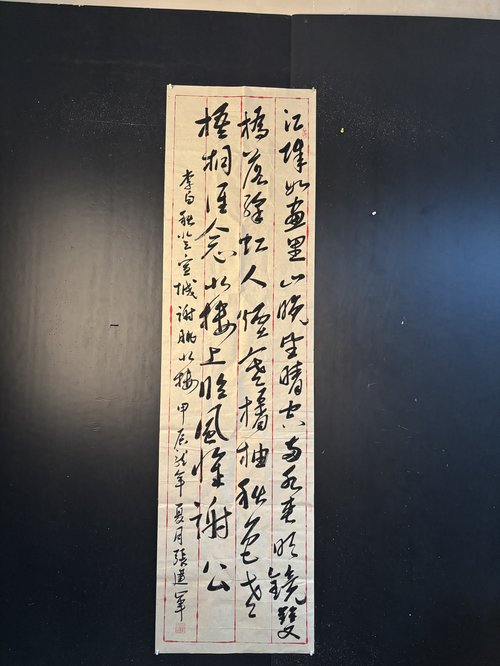 江城如畫里山晓望晴空两水夹明鏡雙
橋落綵虹人煙寒橘柚秋色老
梧桐谁念北楼上临風怀谢公
李白秋登宣城谢朓北楼 甲辰龙年夏月張道軍